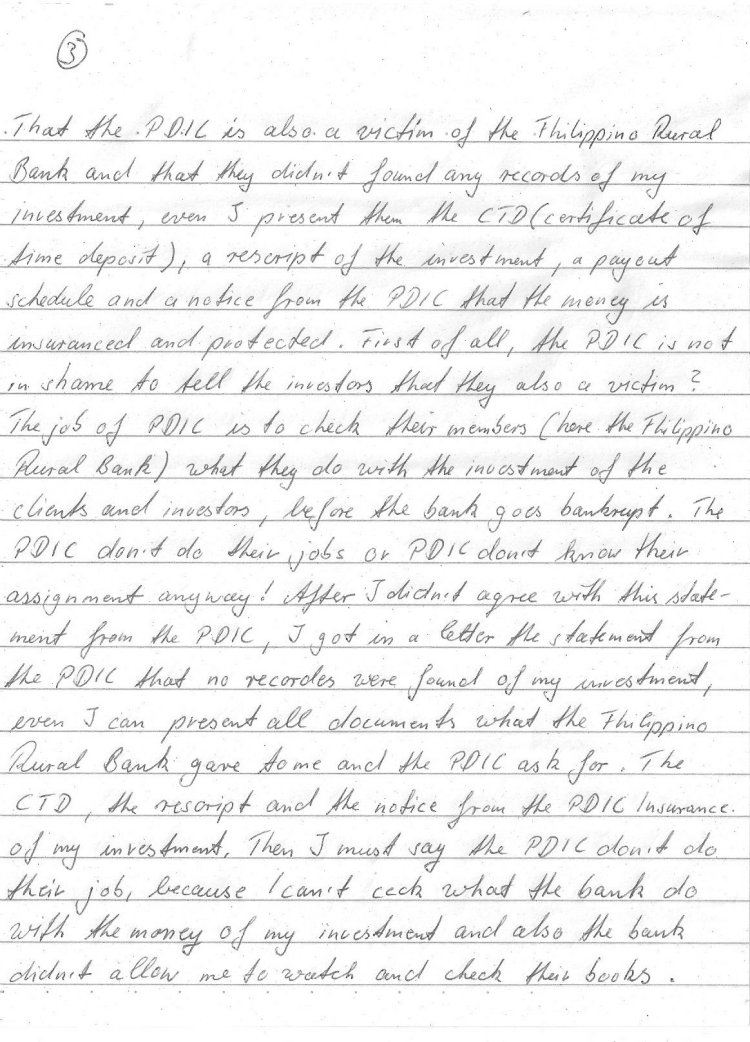 3
That the PDIC is also a victim of the Fhilippino Rural
Bank and that they didn't found any records of my
investment, even I present them the CTD (certificate of
time deposit), a rescript of the investment, a payout
schedule and a notice from the PDIC that the money is
insuranced and protected. First of all, the PDIC is not
in shame to tell the investors that they also a victim?
The job of PDIC is to check their members (here the Fhilippino
Rural Bank) what they do with the investment of the
clients and investors, before the bank goes bankrupt. The
PDIC don't do their jobs or PDIC don't know their
assignment anyway! After I didn't agree with this state-
ment from the PDIC, I got in a letter the statement from
the PDIC that no recordes were found of my investment,
even I can present all documents what the Fhilippino
Rural Bank gave to me and the PDIC ask for. The
CTD, the rescript and the notice from the PDIC Insurance
of my investment. Then I must say the PDIC don't do
their job, because I can't ceck what the bank do
with the money of my investment and also the bank
didn't allow me to watch and check their books.